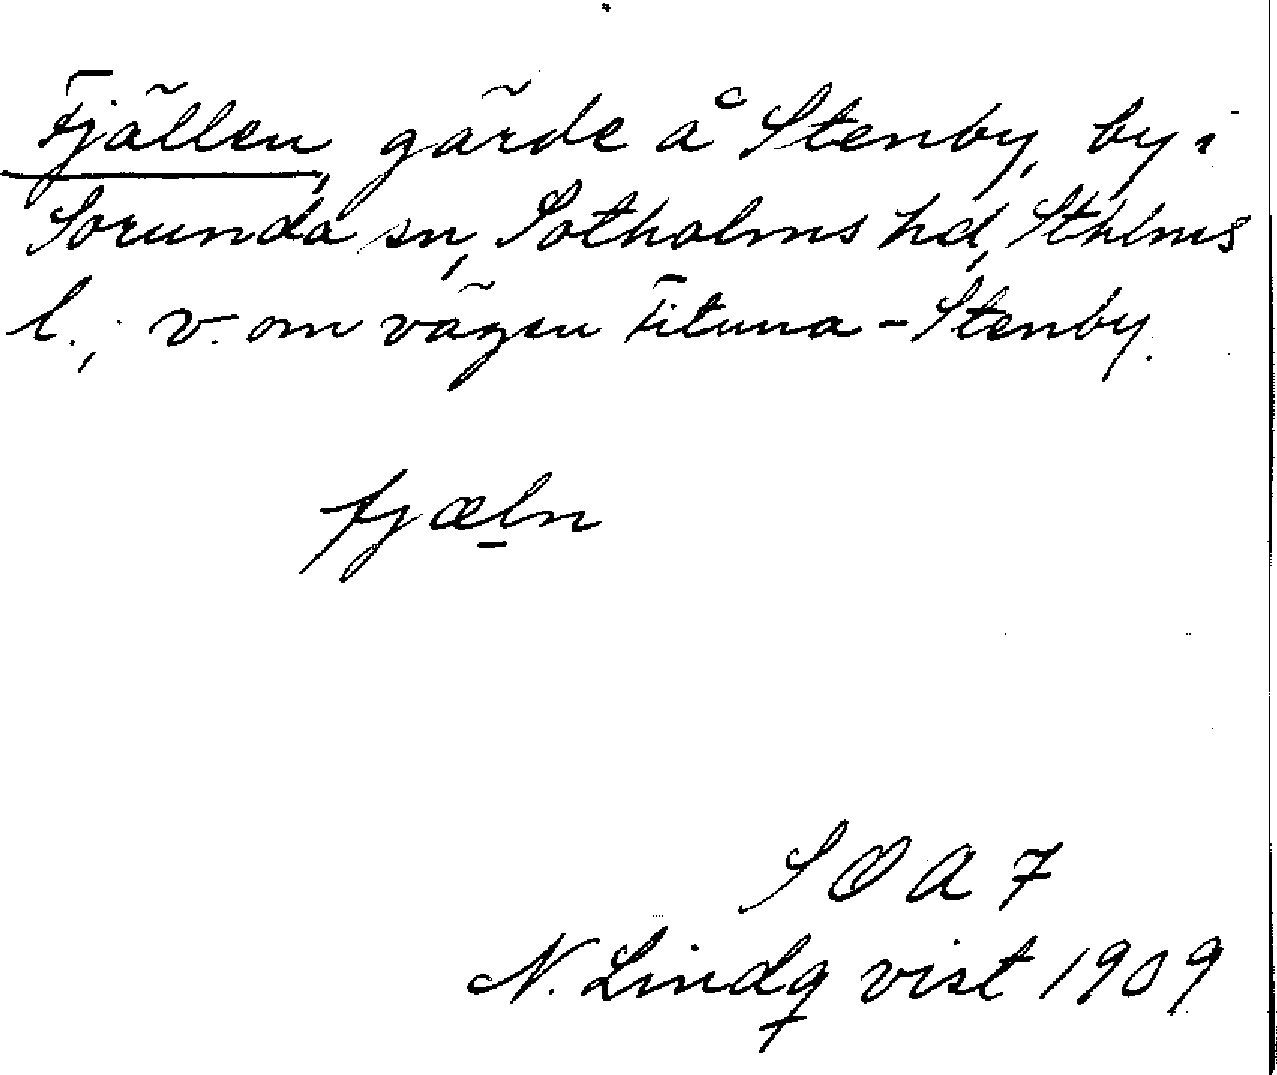 Fjällen, gärde å Stenby, by i
Sorunda sn, Sotholms hd, Sthlms
l.; v. om vägen Fituna-Stenby.
fjæln
SOA 7
N. Lindqvist 1909